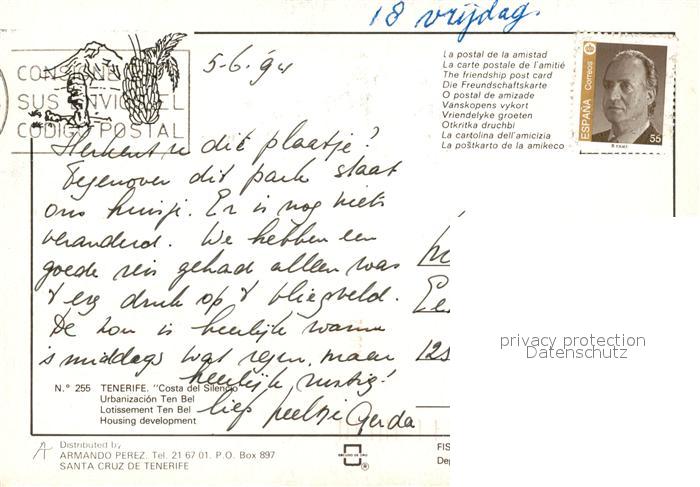 18 vrijdag.
CONSIGNE
SUS ENVIOS EL
CODIGO POSTAL
5-6.94
La postal de la amistad
La carte postale de l'amitié
The friendship post card
Die Freundschaftskarte
O postal de amizade
Vanskopens vykort
Vriendelyke groeten
Otkritka druchbi
La cartolina dell'amicizia
La poŝtkarto de la amikeco
ESPAÑA Correos
55
Herkent u dit plaatje?
Tegenover dit park staat
ons huisje. Er is nog niets
veranderd. We hebben een
goede reis gehad alleen was
't erg druk op 't vliegveld.
De zon is heerlijk warm
's middags wat regen, maar
heerlijk rustig!
liefs Gerda
12s
privacy protection
Datenschutz
N.º 255 TENERIFE. "Costa del Silencio"
Urbanización Ten Bel
Lotissement Ten Bel
Housing development
Distributed by
ARMANDO PEREZ. Tel. 21 67 01. P.O. Box 897
SANTA CRUZ DE TENERIFE
FIS
Dep